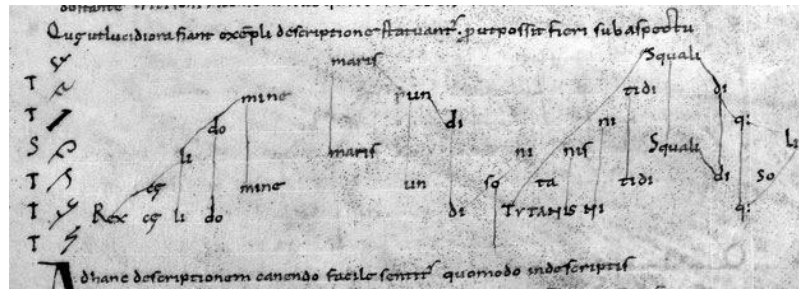 Quę ut lucidiora fiant exẽpli descriptione statuant᷑. put possit fieri sub aspectu
maris Squali
T mine run tidi di
T do di ni q:
S li maris ni nis Squali Li
T cę mine un so ta tidi di so
T Rex cę li do di TYTANIS NI q:
T
Ad hanc descriptionem canendo facile sentit᷑ quomodo in descriptis